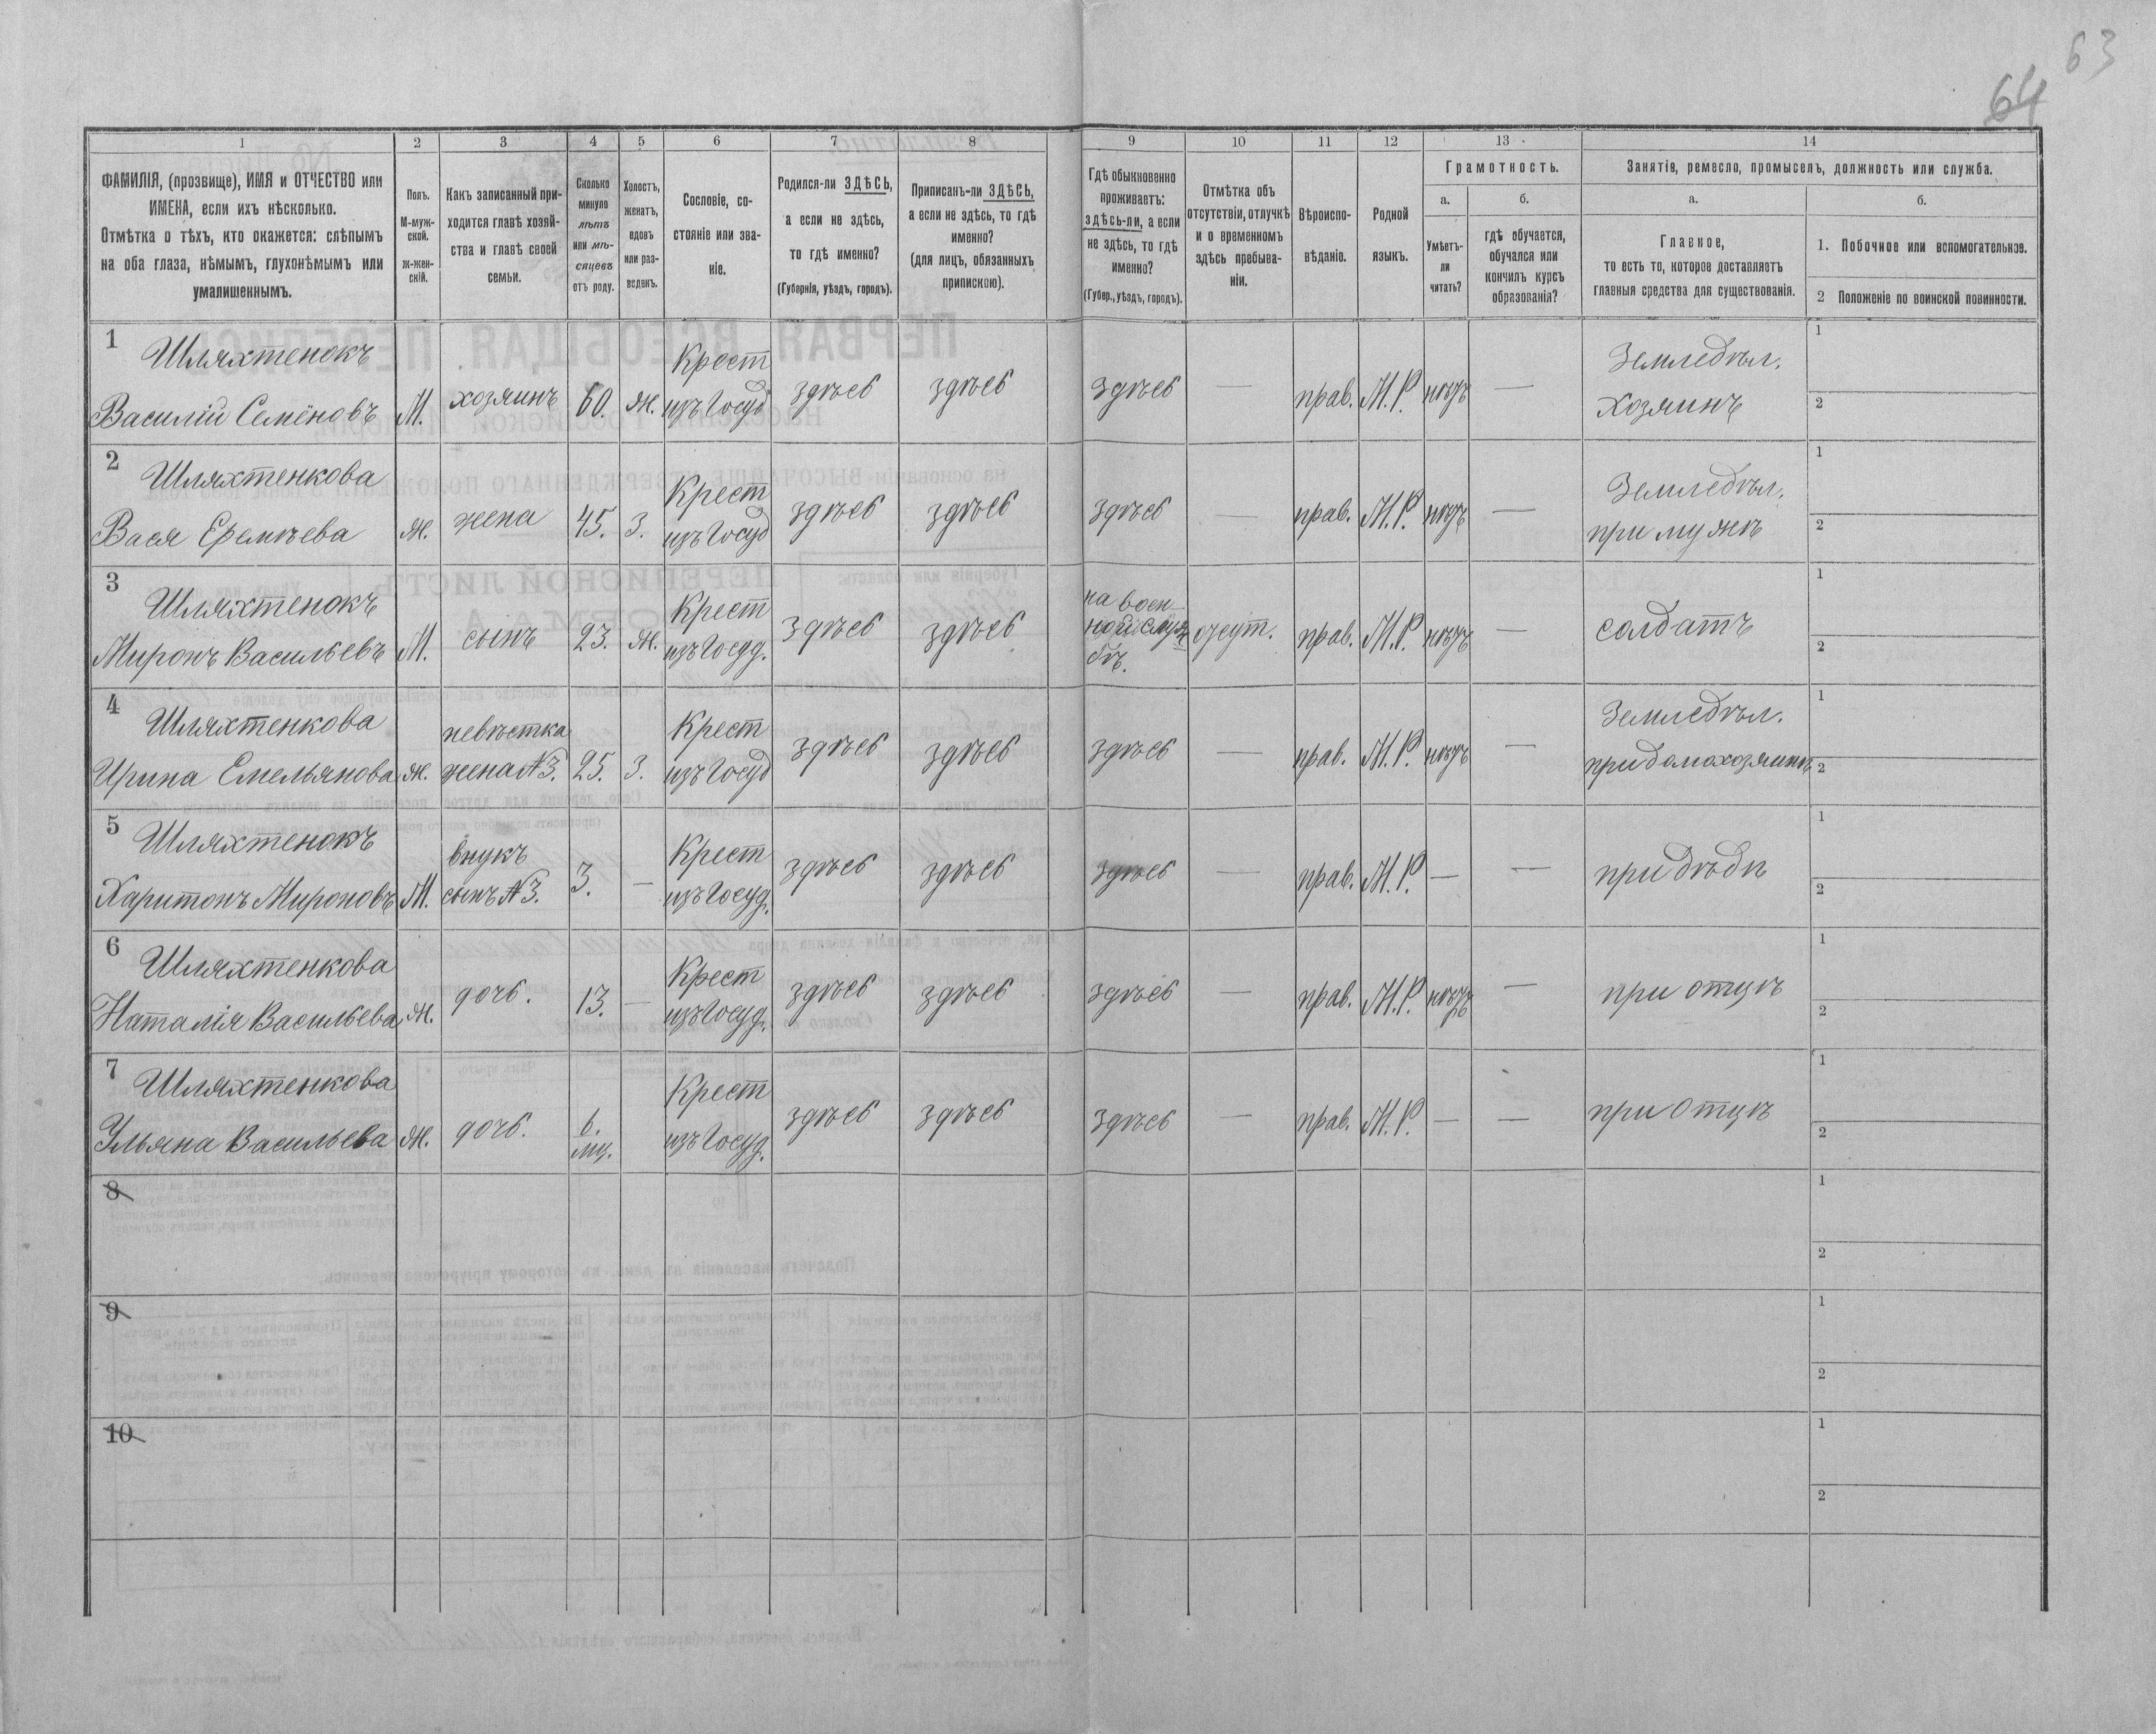 63
64
1 2 3 4 5 6 7 8 9 10 11 12 13 14
ФАМИЛІЯ, (прозвище), ИМЯ и ОТЧЕСТВО или
ИМЕНА, если ихъ нѣсколько.
Отмѣтка о тѣхъ, кто окажется: слѣпымъ
на оба глаза, нѣмымъ, глухонѣмымъ или
умалишеннымъ.
Полъ.
М-муж-
ской.
Ж-жен-
скій.
Какъ записанный при-
ходится главѣ хозяй-
ства и главѣ своей
семьи.
Сколько
минуло
лѣтъ
или мѣ-
сяцевъ
отъ роду.
Холостъ,
женатъ,
вдовъ
или раз-
веденъ.
Сословіе, со-
стояніе или зва-
ніе.
Родился-ли ЗДѢСЬ,
а если не здѣсь,
то гдѣ именно?
(Губернія, уѣздъ, городъ).
Приписанъ-ли ЗДѢСЬ,
а если не здѣсь, то гдѣ
именно?
(для лицъ, обязанныхъ
припискою).
Гдѣ обыкновенно
проживаетъ:
здѣсь-ли, а если
не здѣсь, то гдѣ
именно?
(Губер., уѣздъ, городъ).
Отмѣтка объ
отсутствіи, отлучкѣ
и о временномъ
здѣсь пребыва-
ніи.
Вѣроиспо-
вѣданіе.
Родной
языкъ.
Грамотность.
а. б.
Умѣетъ-
ли
читать?
гдѣ обучается,
обучался или
кончилъ курсъ
образованія?
Занятія, ремесло, промыселъ, должность или служба.
а. б.
Главное,
то есть то, которое доставляетъ
главныя средства для существованія.
1. Побочное или вспомогательное.
2 Положеніе по воинской повинности.
1 Шляхтенокъ Крест Земледѣл. 1
Василій Семёновъ М. хозяинъ 60. Ж. изъ Госуд здѣсь здѣсь здѣсь — прав. М.Р. нѣтъ — Хозяинъ 2
2 Шляхтенкова Крест Земледѣл. 1
Вася Еремѣева Ж. жена 45. З. изъ Госуд здѣсь здѣсь здѣсь — прав. М.Р. нѣтъ — при мужѣ 2
3 Шляхтенокъ Крест на воен- 1
Миронъ Васильевъ М. сынъ 23. Ж. изъ Госуд. здѣсь здѣсь ной служ отсут. прав. М.Р. нѣтъ — солдатъ 2
бѣ.
4 Шляхтенкова невѣстка Крест Земледѣл. 1
Ирина Емельянова Ж. жена №3. 25. З. изъ Госуд здѣсь здѣсь здѣсь — прав. М.Р. нѣтъ — при домохозяинѣ 2
5 Шляхтенокъ внукъ Крест 1
Харитонъ Мироновъ М. сынъ №3. 3. — изъ Госуд. здѣсь здѣсь здѣсь — прав. М.Р. — — при дѣдѣ 2
6 Шляхтенкова Крест 1
Наталія Васильева Ж. дочь. 13. — изъ Госуд. здѣсь здѣсь здѣсь — прав. М.Р. нѣтъ — при отцѣ 2
7 Шляхтенкова Крест 1
Ульяна Васильева Ж. дочь. 6. мц. изъ Госуд. здѣсь здѣсь здѣсь — прав. М.Р. — — при отцѣ 2
8 1
2
9 1
2
10 1
2